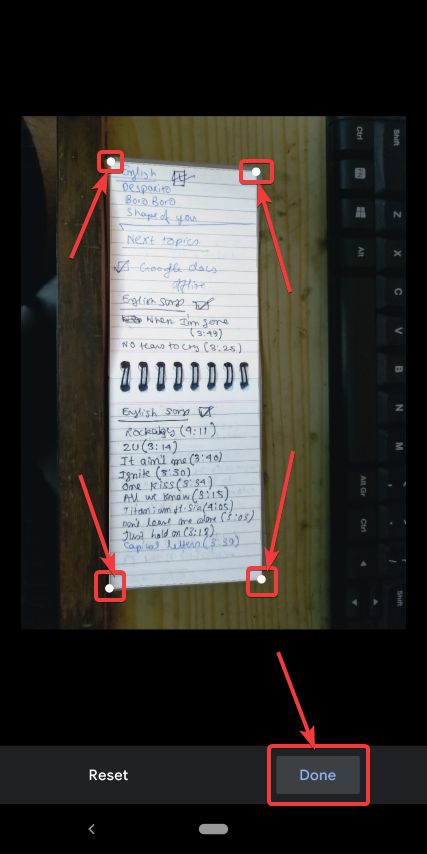 English
Despacito
Boro Boro
Shape of you
Next topics
Google docs
offline
English Song
When I'm gone
(3:49)
No tears to cry (3:25)
English Song
Rockabye (4:11)
2U (3:14)
It ain't me (3:40)
Ignite (3:30)
One kiss (3:34)
All we know (3:15)
Titanium ft. Sia (4:05)
Don't leave me alone (3:03)
Just hold on (3:18)
Capital letters (3:39)
Shift
Ctrl
Z
Alt
X
C
V
B
N
M
Alt Gr
Ctrl
/
Shift
Reset
Done